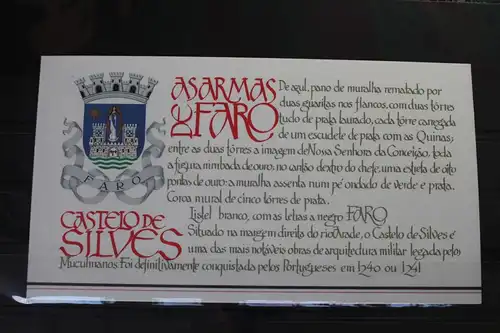 AS ARMAS
DE FARO
De azul, pano de muralha rematado por
duas guaritas nos flancos, com duas tôrres
tudo de prata lavrado, cada tôrre carregada
de um escudete de prata com as Quinas;
entre as duas tôrres a imagem de Nossa Senhora da Conceição, toda
a figura, nimbada de ouro, no cantão dextro do chefe, uma estrêla de oito
pontas de ouro: a muralha assenta num pé ondado de verde e prata.
Coroa mural de cinco tôrres de prata.
Listel branco, com as letras a negro FARO
FARO
CASTELO DE
SILVES
Situado na margem direita do rio Arade, o Castelo de Silves é
uma das mais notáveis obras de arquitectura militar legada pelos
Muculmanos. Foi definitivamente conquistada pelos Portugueses em 1240 ou 1241